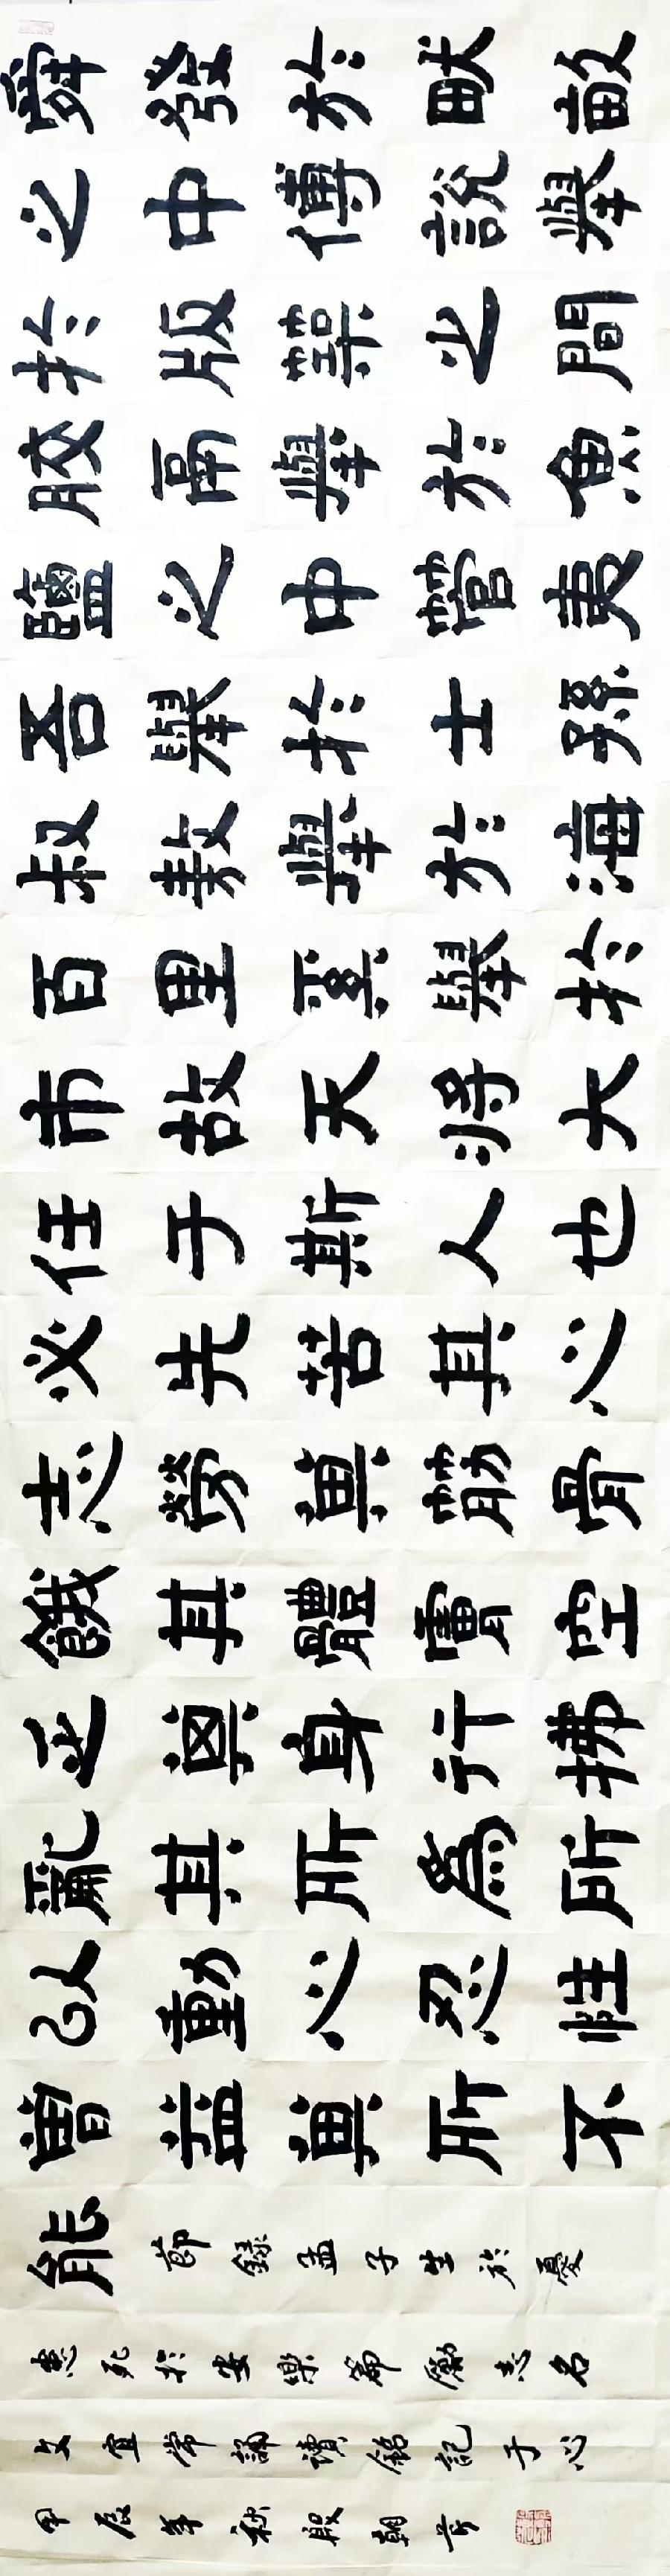 舜發於畎畝
之中傅說舉
於版築之間
膠鬲舉於魚
鹽之中管夷
吾舉於士孫
叔敖舉於海
百里奚舉於
市故天將大
任于斯人也
必先苦其心
志勞其筋骨
餓其體膚空
乏其身行拂
亂其所為所
以動心忍性
曾益其所不
能節錄孟子生於憂
患死於安樂篇勵志名
文宜常誦讀銘記于心
甲辰年秋段朝